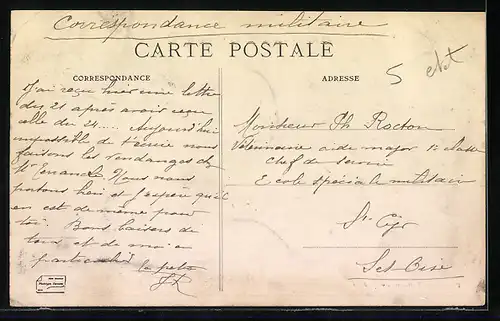 Correspondance militaire
CARTE POSTALE
CORRESPONDANCE
J'ai reçu hier une lettre
du 21 après avoir reçu
celle du 24.... Aujourd'hui
impossible de t'écrire nous
faisons les vendanges chez
Mr
portons bien et j'espère qu'il
en est de même pour
toi. Bons baisers de
tous et de moi en
particulier
la petite
ADRESSE
5
Monsieur Th Rocton
Vétérinaire aide major 1e classe
chef de service
Ecole spéciale militaire
St Cyr
Set Oise